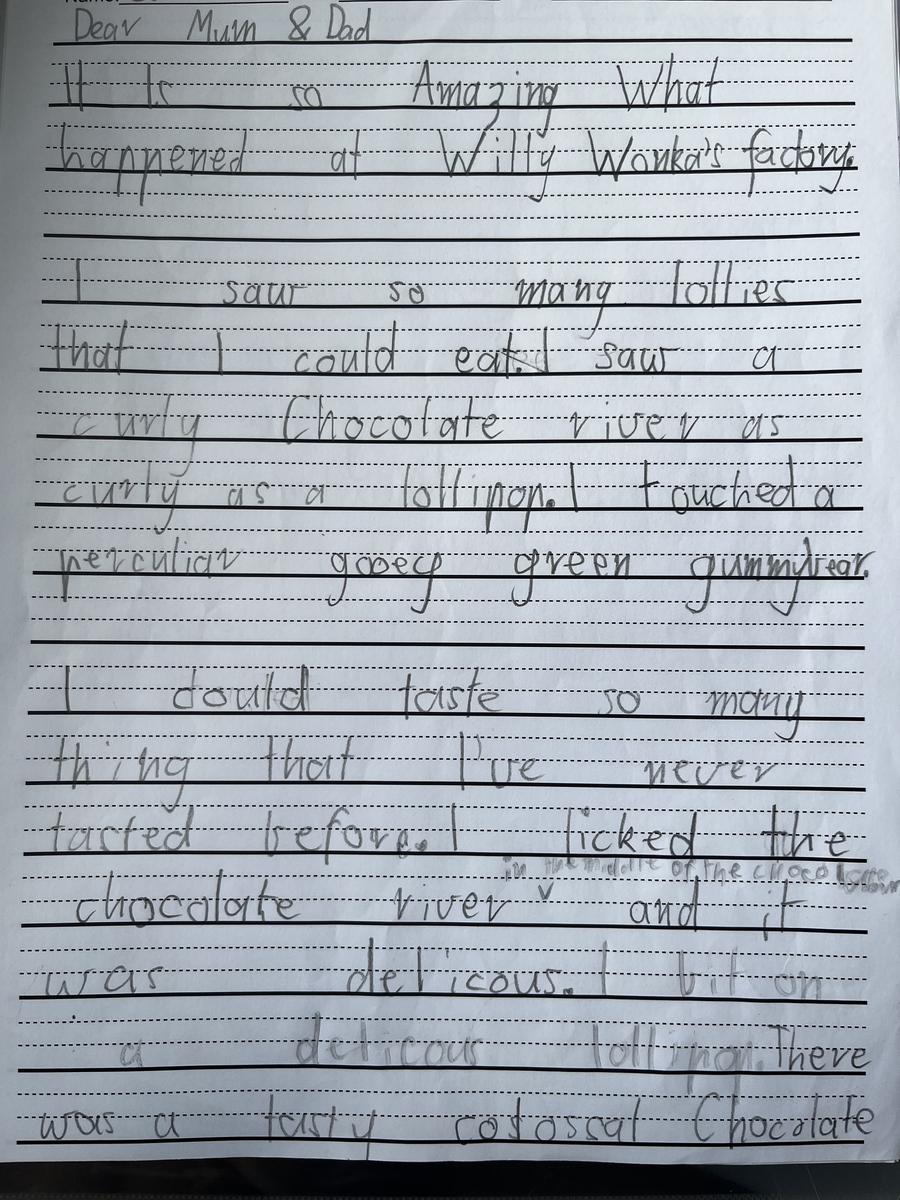 Dear Mum & Dad
It Is so Amazing What
happened at Willy Wonka's factory.
I saw so many lollies
that I could eat. I saw a
curly Chocolate river as
curly as a lollipop. I touched a
perculiar gooey green gummybear.
I could taste so many
thing that I've never
tasted before. I licked the
in the middle of the chocolate
chocolate river v and it
was delicous. I bit on
a delicous lollipop. There
was a tasty colossal Chocolate